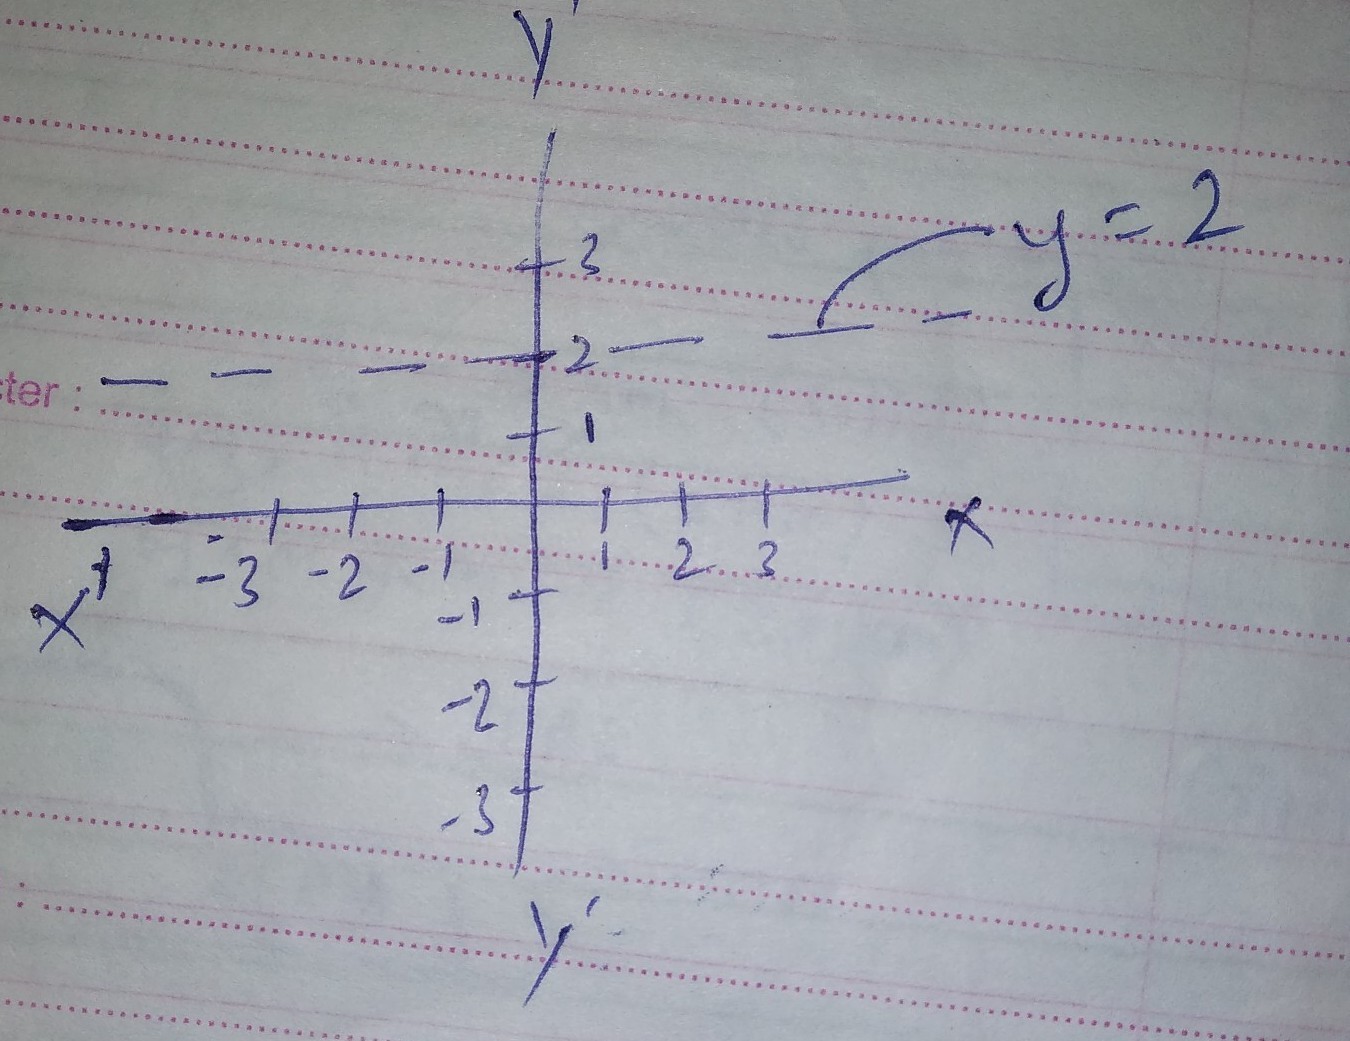 y'
y = 2
3
2
ter :
1
x
x' -3 -2 -1 1 2 3
-1
-2
-3
y'